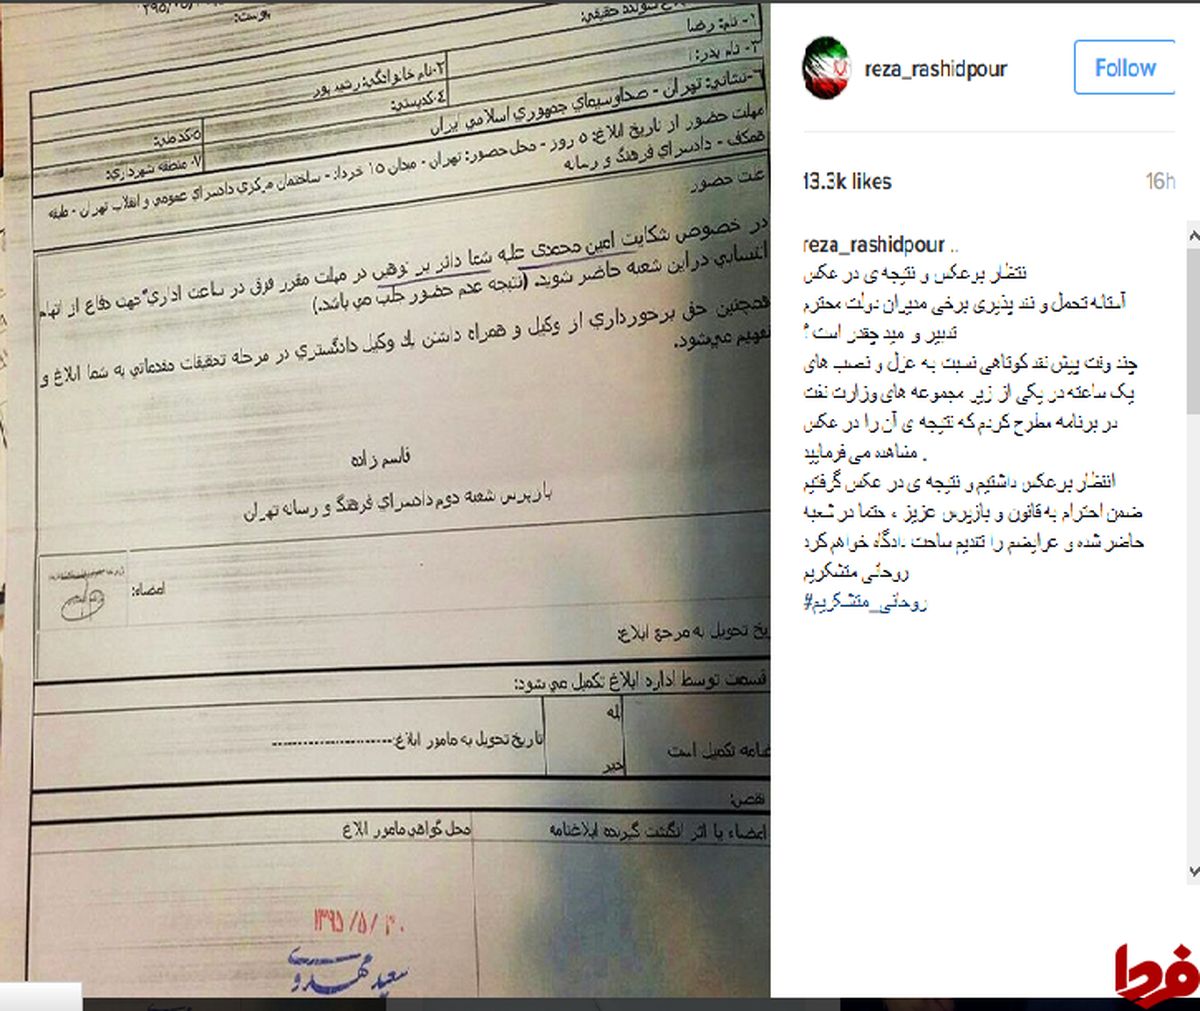 پیوست:
۱- نام: رضا
۲- نام خانوادگی: رشید پور
۳- نام پدر:
۴- کدپستی:
۵- کد ملی:
۶- نشانی: تهران - صداوسیمای جمهوری اسلامی ایران
۷- منطقه شهرداری:
مهلت حضور از تاریخ ابلاغ: ۵ روز - محل حضور: تهران - میدان ۱۵ خرداد - ساختمان مرکزی دادسرای عمومی و انقلاب تهران - طبقه
همکف - دادسرای فرهنگ و رسانه
علت حضور
در خصوص شکایت امین محمدی علیه شما دائر بر توهین در مهلت مقرر فوق در ساعت اداری جهت دفاع از اتهام
انتسابی در این شعبه حاضر شوید. (نتیجه عدم حضور جلب می باشد)
همچنین حق برخورداری از وکیل و همراه داشتن یک وکیل دادگستری در مرحله تحقیقات مقدماتی به شما ابلاغ و
تفهیم می‌شود.
قاسم زاده
بازپرس شعبه دوم دادسرای فرهنگ و رسانه تهران
امضاء:
تحویل به مرجع ابلاغ:
قسمت توسط اداره ابلاغ تکمیل می شود:
بله
تکمیل است
خیر
تاریخ تحویل به مامور ابلاغ:
نقص:
امضاء یا اثر انگشت گیرنده ابلاغنامه
محل گواهی مامور ابلاغ
۱۳۹۵/۵/۲۰
سعید مهدوی
reza_rashidpour
Follow
13.3k likes
16h
reza_rashidpour ..
انتظار برعکس و نتیجه ی در عکس
آستانه تحمل و نقد پذیری برخی مدیران دولت محترم
تدبیر و امید چقدر است ؟
چند وقت پیش نقد کوتاهی نسبت به عزل و نصب های
یک ساعته در یکی از زیر مجموعه های وزارت نفت
در برنامه مطرح کردم که نتیجه ی آن را در عکس
مشاهده می فرمایید .
انتظار برعکس داشتیم و نتیجه ی در عکس گرفتیم
ضمن احترام به قانون و بازپرس عزیز ، حتما در شعبه
حاضر شده و عرایضم را تقدیم ساحت دادگاه خواهم کرد
روحانی متشکریم
#روحانی_متشکریم
فردا